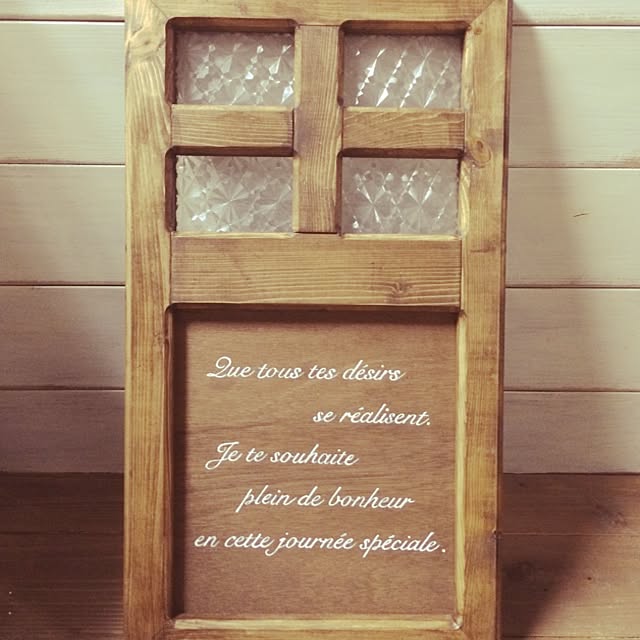 Que tous tes désirs
se réalisent.
Je te souhaite
plein de bonheur
en cette journée spéciale.